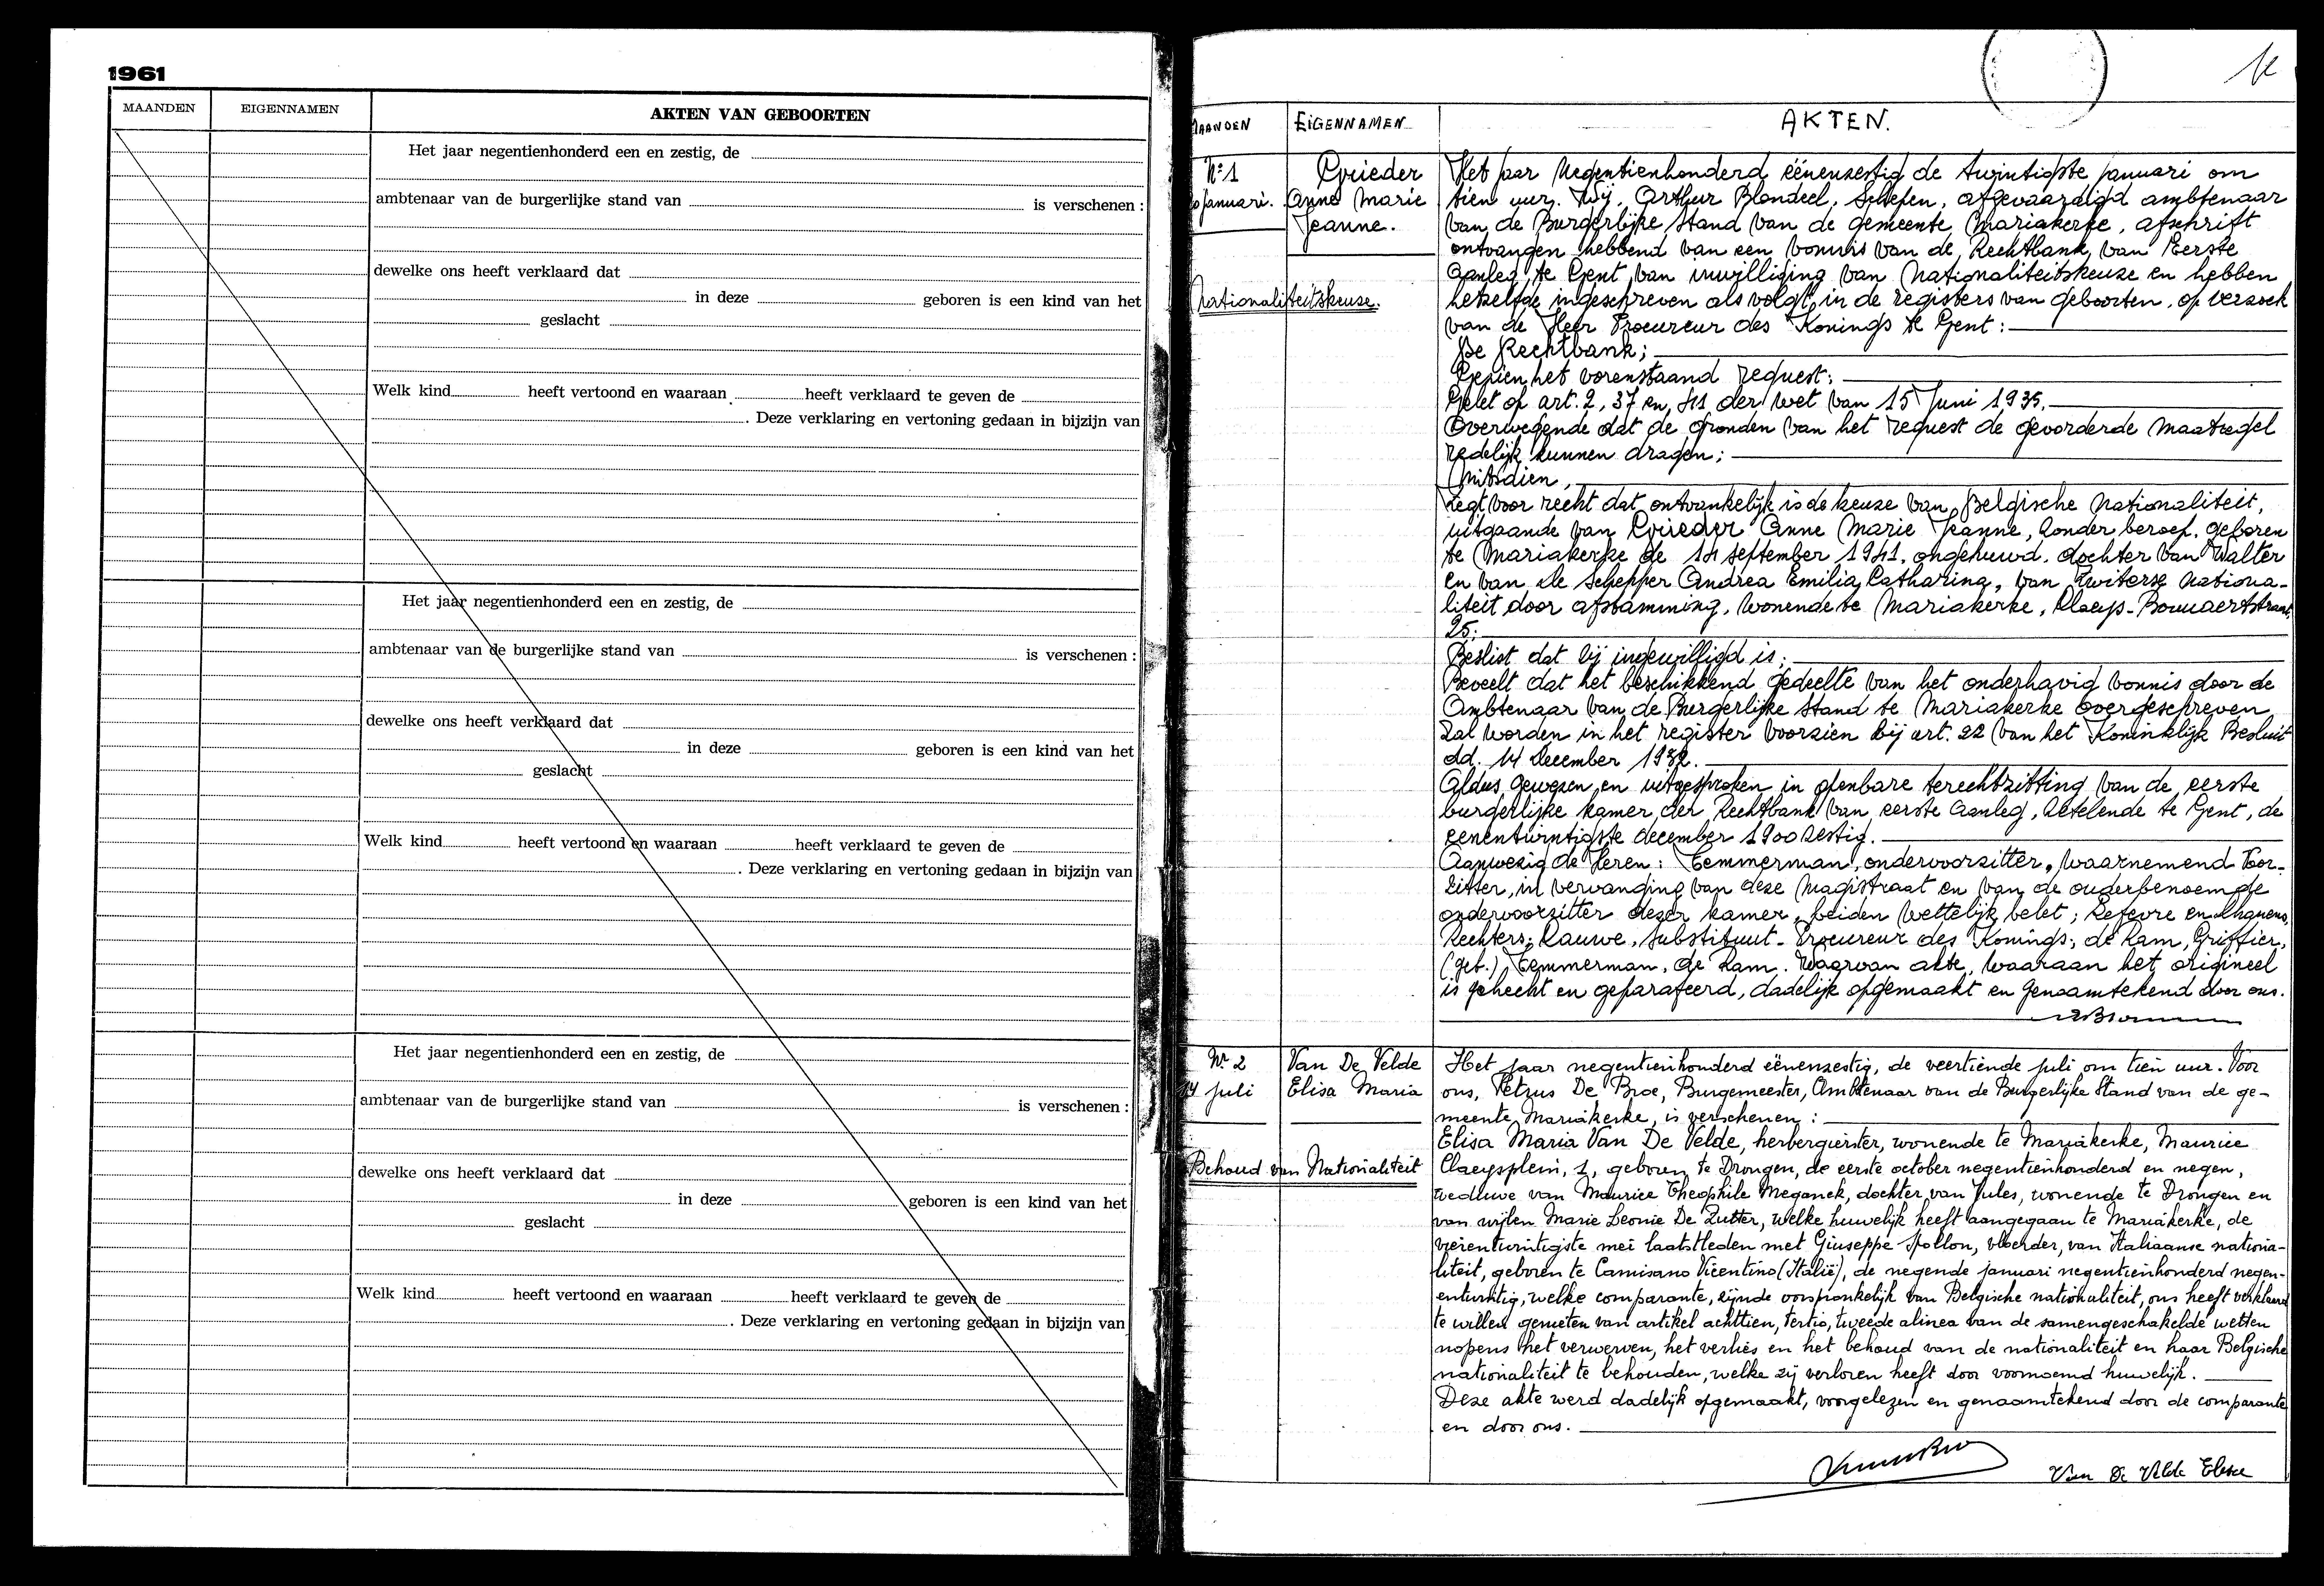 1961
MAANDEN EIGENNAMEN AKTEN VAN GEBOORTEN
Het jaar negentienhonderd een en zestig, de
ambtenaar van de burgerlijke stand van is verschenen :
dewelke ons heeft verklaard dat
in deze geboren is een kind van het
geslacht
Welk kind heeft vertoond en waaraan heeft verklaard te geven de
. Deze verklaring en vertoning gedaan in bijzijn van
Het jaar negentienhonderd een en zestig, de
ambtenaar van de burgerlijke stand van is verschenen :
dewelke ons heeft verklaard dat
in deze geboren is een kind van het
geslacht
Welk kind heeft vertoond en waaraan heeft verklaard te geven de
. Deze verklaring en vertoning gedaan in bijzijn van
Het jaar negentienhonderd een en zestig, de
ambtenaar van de burgerlijke stand van is verschenen :
dewelke ons heeft verklaard dat
in deze geboren is een kind van het
geslacht
Welk kind heeft vertoond en waaraan heeft verklaard te geven de
. Deze verklaring en vertoning gedaan in bijzijn van
MAANDEN EIGENNAMEN AKTEN.
N: 1
januari.
Anne Marie
Jeanne.
Nationaliteitskeuse.
Het jaar Negentienhonderd eënenzestig de twintigste januari om
tien uur. Wij, Arthur Blondeel, Schepen, afgevaardigd ambtenaar
van de Burgerlijke Stand van de gemeente Mariakerke, afschrift
ontvangen hebbend van een vonnis van de Rechtbank van Eerste
Aanleg te Gent van inwilliging van Nationaliteitskeuze en hebben
hetzelfde ingeschreven als volgt in de registers van geboorten, op verzoek
van de Heer Procureur des Konings te Gent :
De Rechtbank ;
Gezien het vorenstaand request ;
Gelet op art. 2, 37 en der wet van 15 Juni 1935.
Overwegende dat de gronden van het request de gevorderde maatregel
redelijk kunnen dragen ;
Mitsdien,
Zegt voor recht dat ontvankelijk is de keuze van Belgische nationaliteit,
uitgaande van Anne Marie Jeanne, zonder beroep, geboren
te Mariakerke de september 1941, ongehuwd, dochter van Walter
en van De Schepper Andrea Emilia Catharina, van Zwiterse nationa-
liteit door afstamming, wonende te Mariakerke, Claeys-Bouuaertstraat,
25;
Beslist dat zij ingewilligd is ;
Beveelt dat het beschikkend gedeelte van het onderhavig vonnis door de
Ambtenaar van de Burgerlijke Stand te Mariakerke overgeschreven
zal worden in het register voorzien bij art. 22 van het Koninklijk Besluit
dd. 14 December 1932.
Aldus gewezen en uitgesproken in openbare terechtzitting van de eerste
burgerlijke kamer der Rechtbank van eerste Aanleg, zetelende te Gent, de
eenentwintigste december 1900 zestig.
Aanwezig de Heren : Temmerman, ondervoorzitter, waarnemend Voor-
zitter, in vervanging van deze Magistraat en van de ouderbenoemde
ondervoorzitter dezer kamer, beiden wettelijk belet ; Lefevre en
Rechters; Lauwe, Substituut-Procureur des Konings; de Ram, Griffier,
(get.) Temmerman, de Ram. Waarvan akte, waaraan het origineel
is gehecht en geparafeerd, dadelijk opgemaakt en genaamtekend door ons.
Nr 2
14 juli
Van De Velde
Elisa Maria
Behoud van Nationaliteit
Het jaar negentienhonderd eënenzestig, de veertiende juli om tien uur. Voor
ons, Petrus De Broe, Burgemeester, Ambtenaar van de Burgerlijke Stand van de ge-
meente Mariakerke, is verschenen :
Elisa Maria Van De Velde, herbergierster, wonende te Mariakerke, Maurice
Claeysplein, 1, geboren te Drongen, de eerste october negentienhonderd en negen,
weduwe van Maurice Theophile Meganck, dochter van Jules, wonende te Drongen en
van wijlen Marie Leonie De Zutter, welke huwelijk heeft aangegaan te Mariakerke, de
vierentwintigste mei laatstleden met Giuseppe vloerder, van Italiaanse nationa-
liteit, geboren te Camisano Vicentino (Italië), de negende januari negentienhonderd negen-
entwintig, welke comparante, zijnde oorspronkelijk van Belgische nationaliteit, ons heeft verklaard
te willen genieten van artikel achttien, tertio, tweede alinea van de samengeschakelde wetten
nopens het verwerven, het verlies en het behoud van de nationaliteit en haar Belgische
nationaliteit te behouden, welke zij verloren heeft door voornoemd huwelijk.
Deze akte werd dadelijk opgemaakt, voorgelezen en genaamtekend door de comparante
en door ons.
Van De Velde Elisa